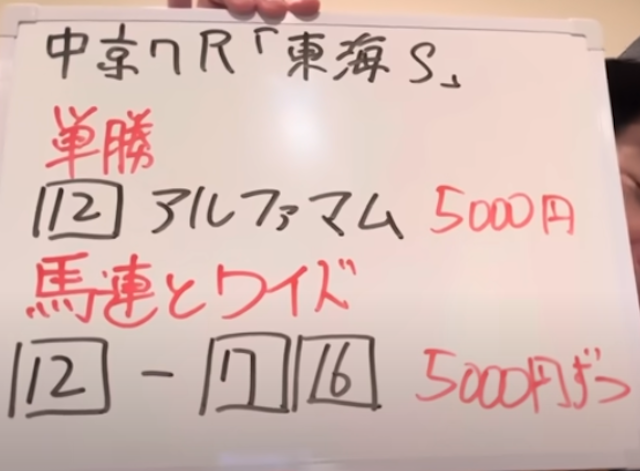 中京7R「東海S」
単勝
12 アルファマム 5000円
馬連とワイド
12 - 7 16 5000円ずつ